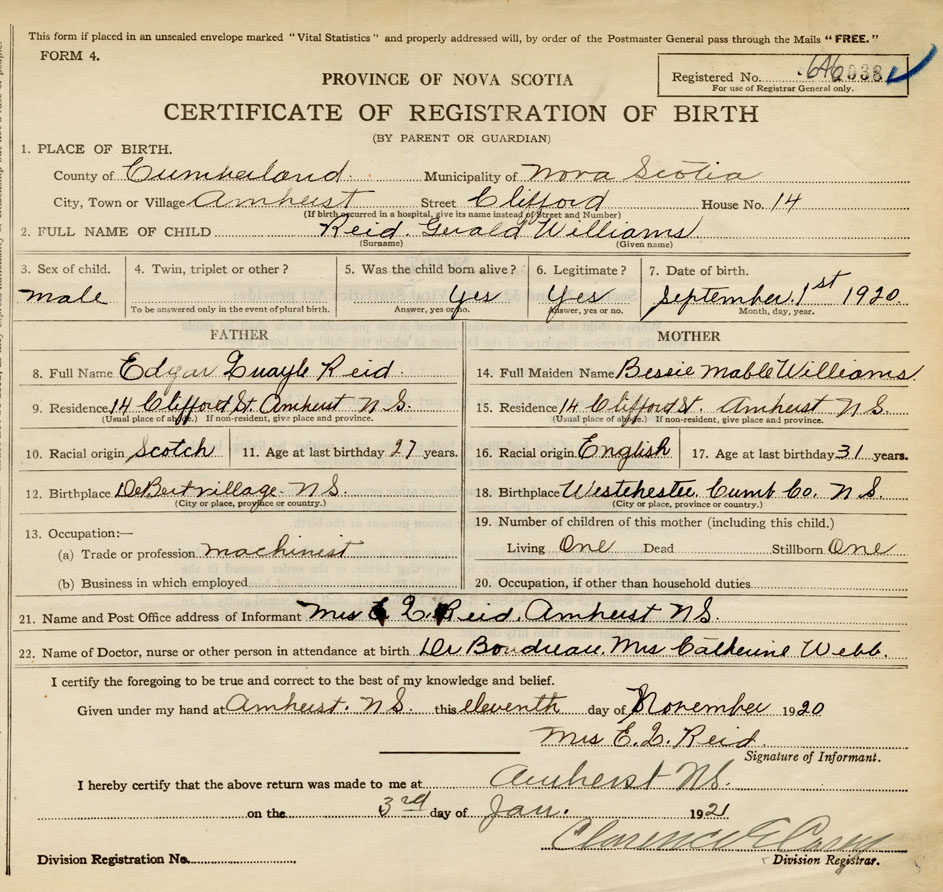 This form if placed in an unsealed envelope marked "Vital Statistics" and properly addressed will, by order of the Postmaster General pass through the Mails "FREE."
FORM 4.
PROVINCE OF NOVA SCOTIA
Registered No. 646038
For use of Registrar General only.
CERTIFICATE OF REGISTRATION OF BIRTH
(BY PARENT OR GUARDIAN)
1. PLACE OF BIRTH.
County of Cumberland Municipality of Nova Scotia
City, Town or Village Amherst Street Clifford House No. 14
(If birth occurred in a hospital, give its name instead of Street and Number)
2. FULL NAME OF CHILD Reid. Gerald Williams
(Surname) (Given name)
3. Sex of child. 4. Twin, triplet or other? 5. Was the child born alive? 6. Legitimate? 7. Date of birth.
male Yes Yes September 1st 1920.
To be answered only in the event of plural birth. Answer, yes or no. Answer, yes or no. Month, day, year.
FATHER MOTHER
8. Full Name Edgar Quayle Reid 14. Full Maiden Name Bessie Mable Williams.
9. Residence 14 Clifford St. Amherst N S. 15. Residence 14 Clifford St. Amherst N S.
(Usual place of abode.) If non-resident, give place and province. (Usual place of abode.) If non-resident, give place and province.
10. Racial origin Scotch 11. Age at last birthday 27 years. 16. Racial origin English 17. Age at last birthday 31 years.
12. Birthplace DeBert village. N S. 18. Birthplace Westchester Cumb Co. N S.
(City or place, province or country.) (City or place, province or country.)
13. Occupation:— 19. Number of children of this mother (including this child.)
(a) Trade or profession machinist Living One Dead Stillborn One
(b) Business in which employed 20. Occupation, if other than household duties
21. Name and Post Office address of Informant Mrs E Q. Reid. Amherst N S.
22. Name of Doctor, nurse or other person in attendance at birth Dr Boudreau, Mrs Catherine Webb.
I certify the foregoing to be true and correct to the best of my knowledge and belief.
Given under my hand at Amherst. N S. this eleventh day of November 1920
Mrs E. Q. Reid.
Signature of Informant.
I hereby certify that the above return was made to me at Amherst N S.
on the 3rd day of Jan. 1921
Clarence E
Division Registration No. Division Registrar.